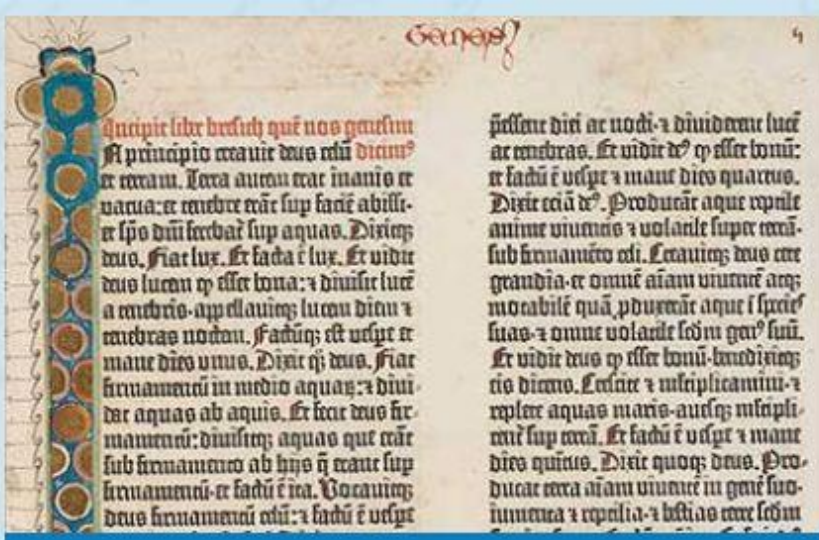 Genesis
Incipit liber bresich quē nos genesim
A principio creauit deus celū dicimꝰ
et terram. Terra autem erat inanis et
vacua: et tenebre erāt sup faciē abissi:
et spūs dn̄i ferebat̄ sup aquas. Dixitqꝫ
deus. Fiat lux. Et facta ē lux. Et vidit
deus lucem ꝙ esset bona: ⁊ diuisit lucē
a tenebris· appellauitqꝫ lucem diem ⁊
tenebras noctem. Factūqꝫ est vespe et
mane dies vnus. Dixit qꝫ deus. Fiat
firmamentū in medio aquaꝝ: ⁊ diui-
dat aquas ab aquis. Et fecit deus fir-
mamentū: diuisitqꝫ aquas que erāt
sub firmamento ab hijs q̄ erant sup
firmamentū: et factū ē ita. Vocauitqꝫ
deus firmamentū celū: ⁊ factū ē vespe
p̄essent diei ac nocti· ⁊ diuiderent lucē
ac tenebras. Et vidit deꝰ ꝙ esset bonū:
et factū ē vespe ⁊ mane dies quartus.
Dixit eciā deꝰ. Producāt aque reptile
anime viuentis ⁊ volatile super terrā·
sub firmamēto celi. Creauitqꝫ deus cete
grandia· et omnē aīam viuentē atqꝫ
motabilē quā ꝓduxerāt aque ī species
suas· ⁊ omne volatile scd̄m genꝰ suū.
Et vidit deus ꝙ esset bonū· benedixitqꝫ
eis dicens. Crescite ⁊ mltiplicamini· ⁊
replete aquas maris· auesqꝫ mltipli-
cent̄ sup terrā. Et factū ē vespe ⁊ mane
dies quintus. Dixit quoqꝫ deus. Pro-
ducat terra aīam viuentē in genē suo·
iumenta ⁊ reptilia· ⁊ bestias terre scd̄m